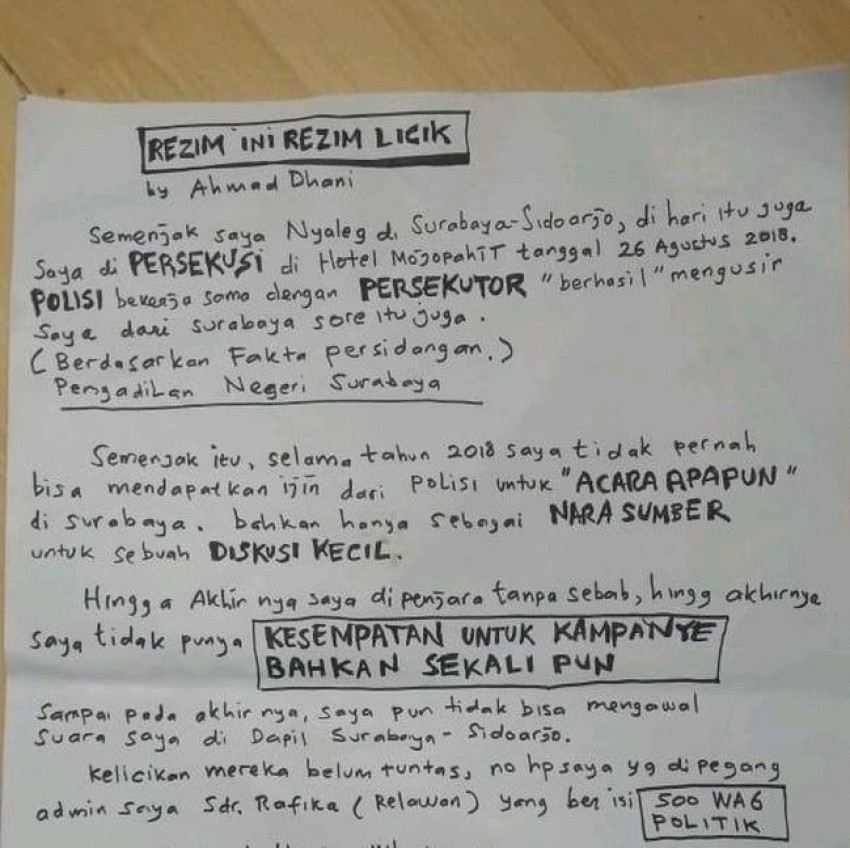 REZIM INI REZIM LICIK
by Ahmad Dhani
Semenjak saya Nyaleg di Surabaya-Sidoarjo, di hari itu juga
Saya di PERSEKUSI di Hotel Mojopahit tanggal 26 Agustus 2018.
POLISI bekerja sama dengan PERSEKUTOR "berhasil" mengusir
Saya dari surabaya sore itu juga.
(Berdasarkan Fakta persidangan.)
Pengadilan Negeri Surabaya
Semenjak itu, selama tahun 2018 saya tidak pernah
bisa mendapatkan ijin dari Polisi untuk "ACARA APAPUN"
di surabaya. bahkan hanya sebagai NARA SUMBER
untuk sebuah DISKUSI KECIL.
Hingga Akhirnya saya di penjara tanpa sebab, hingg akhirnya
saya tidak punya KESEMPATAN UNTUK KAMPANYE
BAHKAN SEKALI PUN
Sampai pada akhirnya, saya pun tidak bisa mengawal
Suara saya di Dapil Surabaya - Sidoarjo.
Kelicikan mereka belum tuntas, no hp saya yg di pegang
admin saya Sdr. Rafika (Relawan) yang ber isi 500 WAG
POLITIK